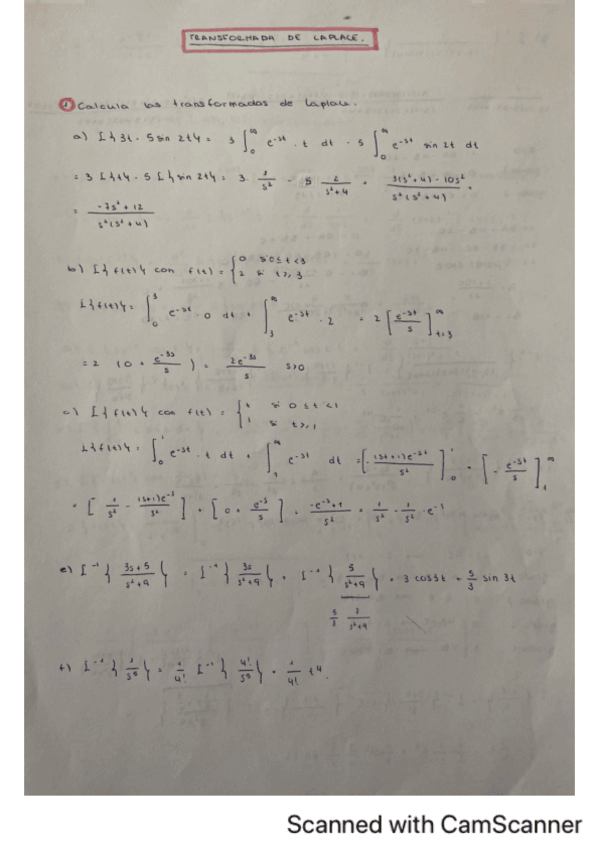 TRANSFORMADA DE LAPLACE.
1 Calcula las transformadas de Laplace.
a) L{3t - 5 sin 2t} = 3 ∫₀^∞ e^-st · t dt - 5 ∫₀^∞ e^-st sin 2t dt
= 3 L{t} - 5 L{sin 2t} = 3 · 1/s² - 5 2/(s²+4) = (3(s²+4) - 10s²)/(s²(s²+4)) =
= (-7s²+12)/(s²(s²+4))
b) L{f(t)} con f(t) = { 0 si 0≤t<3
2 si t≥3
L{f(t)} = ∫₀³ e^-st · 0 dt + ∫₃^∞ e^-st · 2 = 2 [e^-st/s]^∞ t=3
= 2 (0 + e^-3s/s) = 2e^-3s/s s>0
c) L{f(t)} con f(t) = { t si 0≤t<1
1 si t≥1
L{f(t)} = ∫₀¹ e^-st · t dt + ∫₁^∞ e^-st dt = [-(st+1)e^-st/s²]₀¹ + [-e^-st/s]₁^∞
= [1/s² - (s+1)e^-s/s²] + [0 + e^-s/s] = (-e^-s+1)/s² = 1/s² - 1/s² · e^-s
e) L^-1 {(3s+5)/(s²+9)} = L^-1 {3s/(s²+9)} + L^-1 {5/(s²+9)} = 3 cos3t + 5/3 sin 3t
5/3 3/(s²+9)
f) L^-1 {1/s⁵} = 1/4! L^-1 {4!/s⁵} = 1/4! t⁴.
Scanned with CamScanner